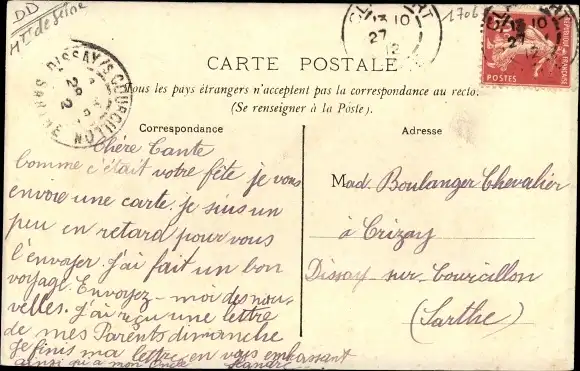 DD
Hts de Seine
DISSAY/S-COURCILLON
29
2
SARTHE
CLAMART
13 10
27
12
1706
REPUBLIQUE FRANÇAISE
POSTES
CARTE POSTALE
Tous les pays étrangers n'acceptent pas la correspondance au recto.
(Se renseigner à la Poste).
Correspondance
Chère Tante
Comme c'était votre fête je vous
envoie une carte. je suis un
peu en retard pour vous
l'envoyer. J'ai fait un bon
voyage. Envoyez-moi des nou-
velles. J'ai reçu une lettre
de mes Parents dimanche
Je finis ma lettre en vous embassant
ainsi qu'a mon Oncle
Adresse
Mad Boulanger Chevalier
à Crizay
Dissay-sur-Courcillon
(Sarthe)